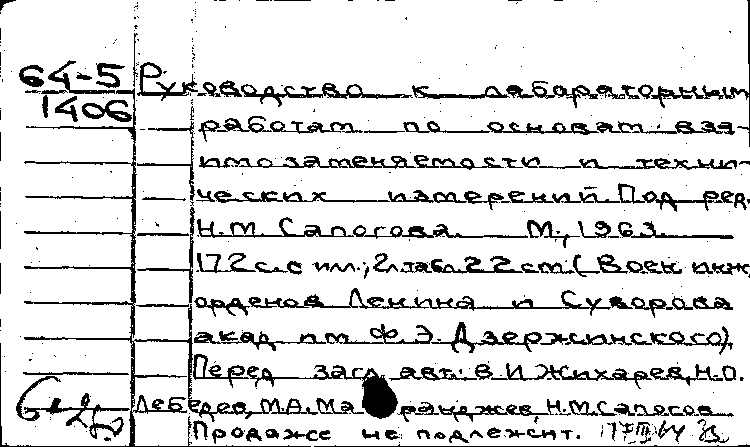 64-5 Руководство к лабораторным
1406 работам по основам взa-
имозаменяемости и техни-
ческих измерений. Под ред.
Н.М. Сапогова. М., 1963.
172 с. с ил.; 2 л. табл. 22 см. (Воен. инж.
орденов Ленина и Суворова
акад. им. Ф.Э. Дзержинского).
Перед загл. авт.: В.И. Жихарев, Н.О.
Лебедев, М.А. Ма ранджев, Н.М. Сапогов
Продаже не подлежит.